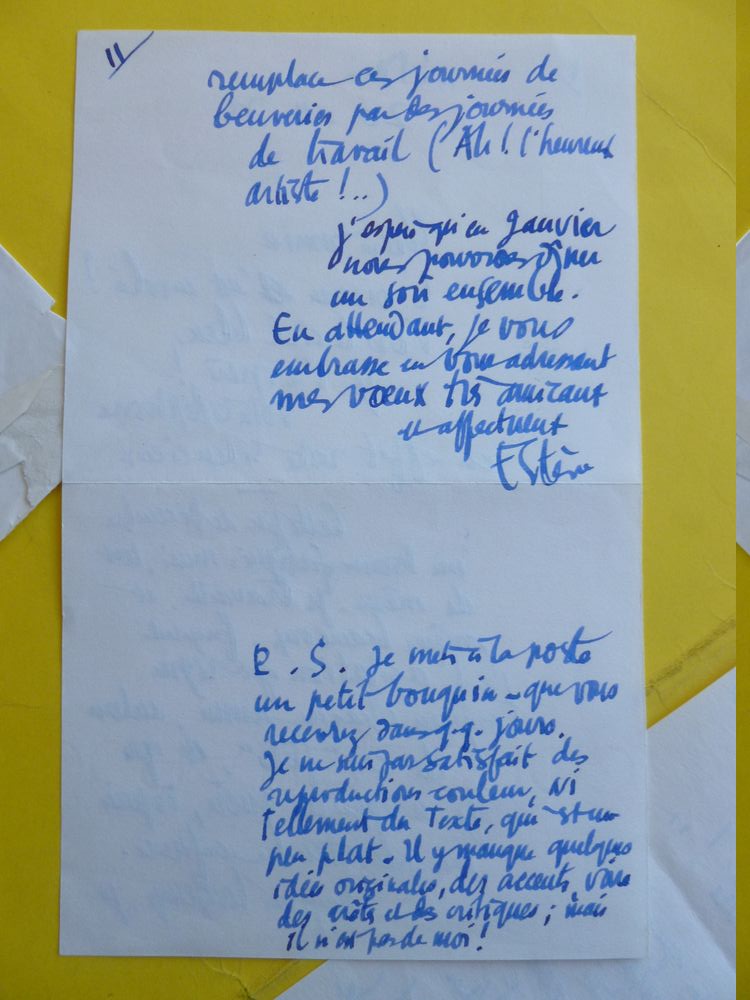 II
remplace ces journées de
beuveries par des journées
de travail (Ah! l'heureux
artiste!..)
j'espère qu'en Janvier
nous pourrons dîner
un soir ensemble.
En attendant, je vous
embrasse en vous adressant
mes vœux très amicaux
et affectueux
Estève
P.S. Je mets à la poste
un petit bouquin - que vous
recevrez dans q.q. jours.
Je ne suis pas satisfait des
reproductions couleur, ni
tellement du Texte, qui est un
peu plat. Il y manque quelques
idées originales, des accents, voire
des et des critiques; mais
il n'est pas de moi!